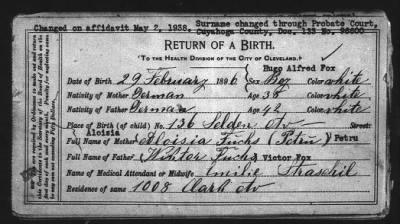 Changed on affidavit May 2, 1938. Surname changed through Probate Court,
Cuyahoga County, Doc. 133 No. 98600
RETURN OF A BIRTH.
"TO THE HEALTH DIVISION OF THE CITY OF CLEVELAND."
Hugo Alfred Fox
Date of Birth 29 February 1896 Sex Boy Color white
Nativity of Mother German Age 38 Color white
Nativity of Father German Age 42 Color white
Place of Birth (of child) No. 136 Selden av Street:
Aloisia
Full Name of Mother Aloisia Fuchs (Petru) Petru
Full Name of Father Wiktor Fuchs Victor Fox
Name of Medical Attendant or Midwife Emilie Straschil
Residence of same 1008 Clark av